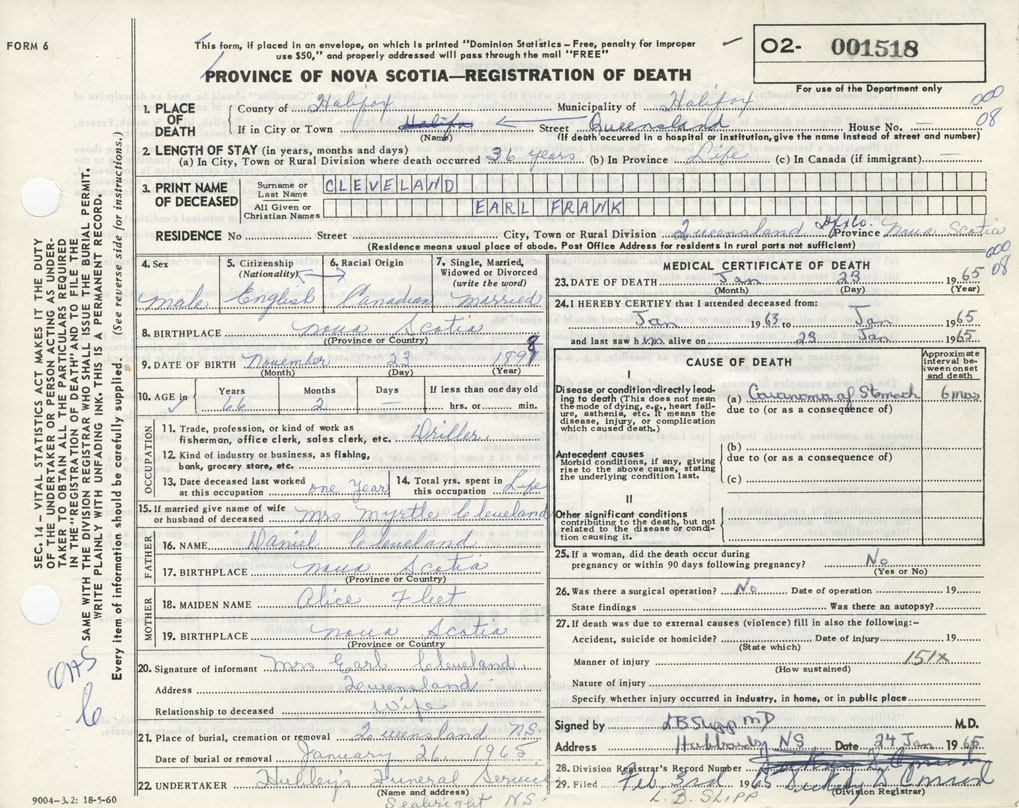 FORM 6
This form, if placed in an envelope, on which is printed "Dominion Statistics – Free, penalty for improper
use $50," and properly addressed will pass through the mail "FREE"
PROVINCE OF NOVA SCOTIA—REGISTRATION OF DEATH
O2- 001518
For use of the Department only
000
08
1. PLACE OF DEATH
County of Halifax Municipality of Halifax
If in City or Town Halifax Street Queensland House No. —
(Name) (If death occurred in a hospital or institution, give the name instead of street and number)
2. LENGTH OF STAY (in years, months and days)
(a) In City, Town or Rural Division where death occurred 36 years (b) In Province Life (c) In Canada (if immigrant) —
3. PRINT NAME OF DECEASED
Surname or Last Name CLEVELAND
All Given or Christian Names EARL FRANK
RESIDENCE No Street City, Town or Rural Division Queensland Hfx Co. Province Nova Scotia
(Residence means usual place of abode. Post Office Address for residents in rural parts not sufficient)
000
08
4. Sex
male
5. Citizenship
(Nationality)
English
6. Racial Origin
Canadian
7. Single, Married,
Widowed or Divorced
(write the word)
Married
8. BIRTHPLACE Nova Scotia
(Province or Country)
9. DATE OF BIRTH November 23 1898
(Month) (Day) (Year)
10. AGE in
Years 66
Months 2
Days —
If less than one day old
hrs. or min.
OCCUPATION
11. Trade, profession, or kind of work as
fisherman, office clerk, sales clerk, etc. Driller
12. Kind of industry or business, as fishing,
bank, grocery store, etc.
13. Date deceased last worked
at this occupation one Year
14. Total yrs. spent in
this occupation Life
15. If married give name of wife
or husband of deceased Mrs Myrtle Cleveland
FATHER
16. NAME Daniel Cleveland
17. BIRTHPLACE Nova Scotia
(Province or Country)
MOTHER
18. MAIDEN NAME Alice Fleet
19. BIRTHPLACE Nova Scotia
(Province or Country)
20. Signature of informant Mrs Earl Cleveland
Address Queensland
Relationship to deceased Wife
21. Place of burial, cremation or removal Queensland N.S.
Date of burial or removal January 26, 1965
22. UNDERTAKER Hubley's Funeral Service
(Name and address)
Seabright N.S.
MEDICAL CERTIFICATE OF DEATH
23. DATE OF DEATH Jan 23 1965
(Month) (Day) (Year)
24. I HEREBY CERTIFY that I attended deceased from:
Jan 1963 to Jan 1965
and last saw him alive on 23 Jan 1965
CAUSE OF DEATH
Approximate
interval be-
tween onset
and death
I
Disease or condition directly lead-
ing to death (This does not mean
the mode of dying, e.g., heart fail-
ure, asthenia, etc. It means the
disease, injury, or complication
which caused death.)
(a) Carcinoma of Stomach 6 mos
due to (or as a consequence of)
Antecedent causes
Morbid conditions, if any, giving
rise to the above cause, stating
the underlying condition last.
(b)
due to (or as a consequence of)
(c)
II
Other significant conditions
contributing to the death, but not
related to the disease or condi-
tion causing it.
25. If a woman, did the death occur during
pregnancy or within 90 days following pregnancy? No
(Yes or No)
26. Was there a surgical operation? No Date of operation 19
State findings Was there an autopsy?
27. If death was due to external causes (violence) fill in also the following:–
Accident, suicide or homicide? Date of injury 19
(State which)
Manner of injury 151X
(How sustained)
Nature of injury
Specify whether injury occurred in industry, in home, or in public place
Signed by L B Slipp MD M.D.
Address Hubbards, N.S. Date 24 Jan 1965
28. Division Registrar's Record Number
29. Filed Feb 3rd 1965
(Division Registrar)
L. B. SLIPP
SEC. 14 – VITAL STATISTICS ACT MAKES IT THE DUTY
OF THE UNDERTAKER OR PERSON ACTING AS UNDER-
TAKER TO OBTAIN ALL THE PARTICULARS REQUIRED
IN THE "REGISTRATION OF DEATH" AND TO FILE THE
SAME WITH THE DIVISION REGISTRAR WHO SHALL ISSUE THE BURIAL PERMIT.
WRITE PLAINLY WITH UNFADING INK. THIS IS A PERMANENT RECORD.
Every item of information should be carefully supplied. (See reverse side for instructions.)
9004-3.2: 18-5-60